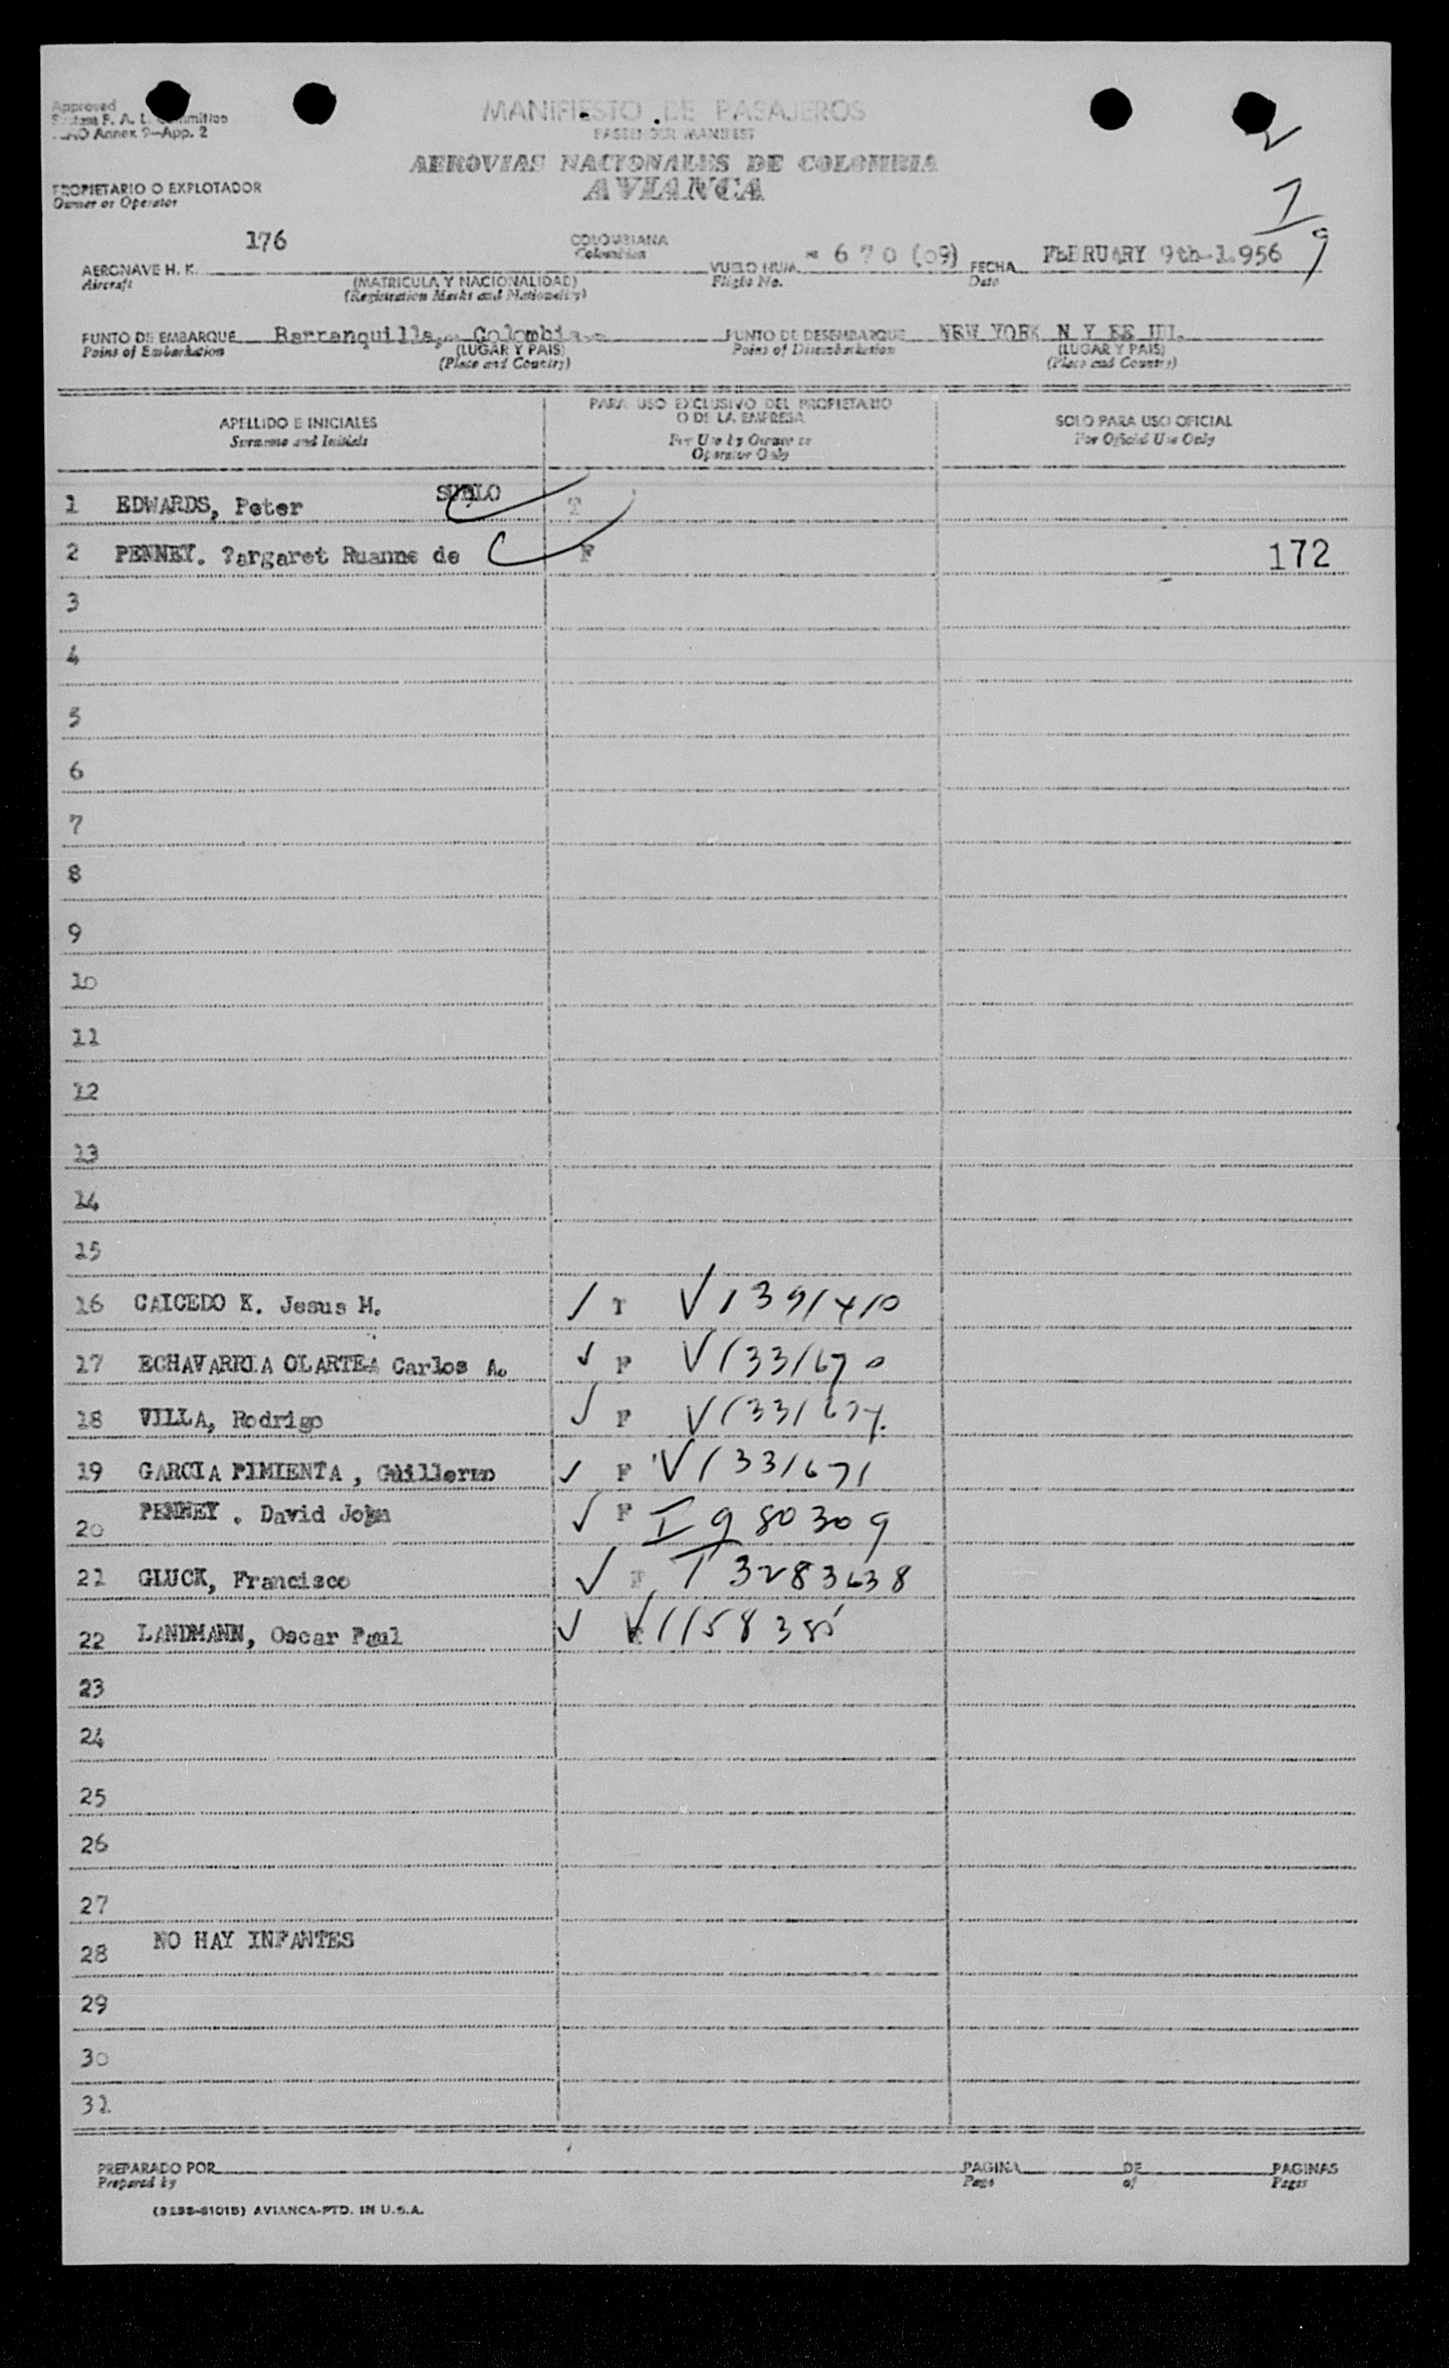 Approved
F. A. L. Committee
ICAO Annex 9—App. 2
MANIFIESTO DE PASAJEROS
PASSENGER MANIFEST
AEROVIAS NACIONALES DE COLOMBIA
AVIANCA
PROPIETARIO O EXPLOTADOR
Owner or Operator
176
COLOMBIANA
Colombian
- 670 (09)
FEBRUARY 9th-1.956
AERONAVE H. K.
VUELO NUM.
FECHA
Aircraft
(MATRICULA Y NACIONALIDAD)
Flight No.
Date
(Registration Marks and Nationality)
PUNTO DE EMBARQUE Barranquilla, Colombia PUNTO DE DESEMBARQUE NEW YORK N Y EE UU.
Point of Embarkation (LUGAR Y PAIS) Point of Disembarkation (LUGAR Y PAIS)
(Place and Country) (Place and Country)
APELLIDO E INICIALES
Surname and Initials
PARA USO EXCLUSIVO DEL PROPIETARIO
O DE LA EMPRESA
For Use by Owner or
Operator Only
SOLO PARA USO OFICIAL
For Official Use Only
1 EDWARDS, Peter SUELO T
2 PENNEY. ?argaret Ruanne de F 172
3
4
5
6
7
8
9
10
11
12
13
14
15
16 CAICEDO K. Jesus M. ✓ T V1391410
17 ECHAVARRIA OLARTEA Carlos A. ✓ F V1331670
18 VILLA, Rodrigo ✓ F V1331674
19 GARCIA PIMIENTA, Guillermo ✓ F V1331671
20 PENNEY . David John ✓ F I980309
21 GLUCK, Francisco ✓ F T3283638
22 LANDMANN, Oscar Paul ✓ V1158385
23
24
25
26
27
28 NO HAY INFANTES
29
30
31
PREPARADO POR PAGINA DE PAGINAS
Prepared by Page of Pages
AVIANCA-PTD. IN U.S.A.